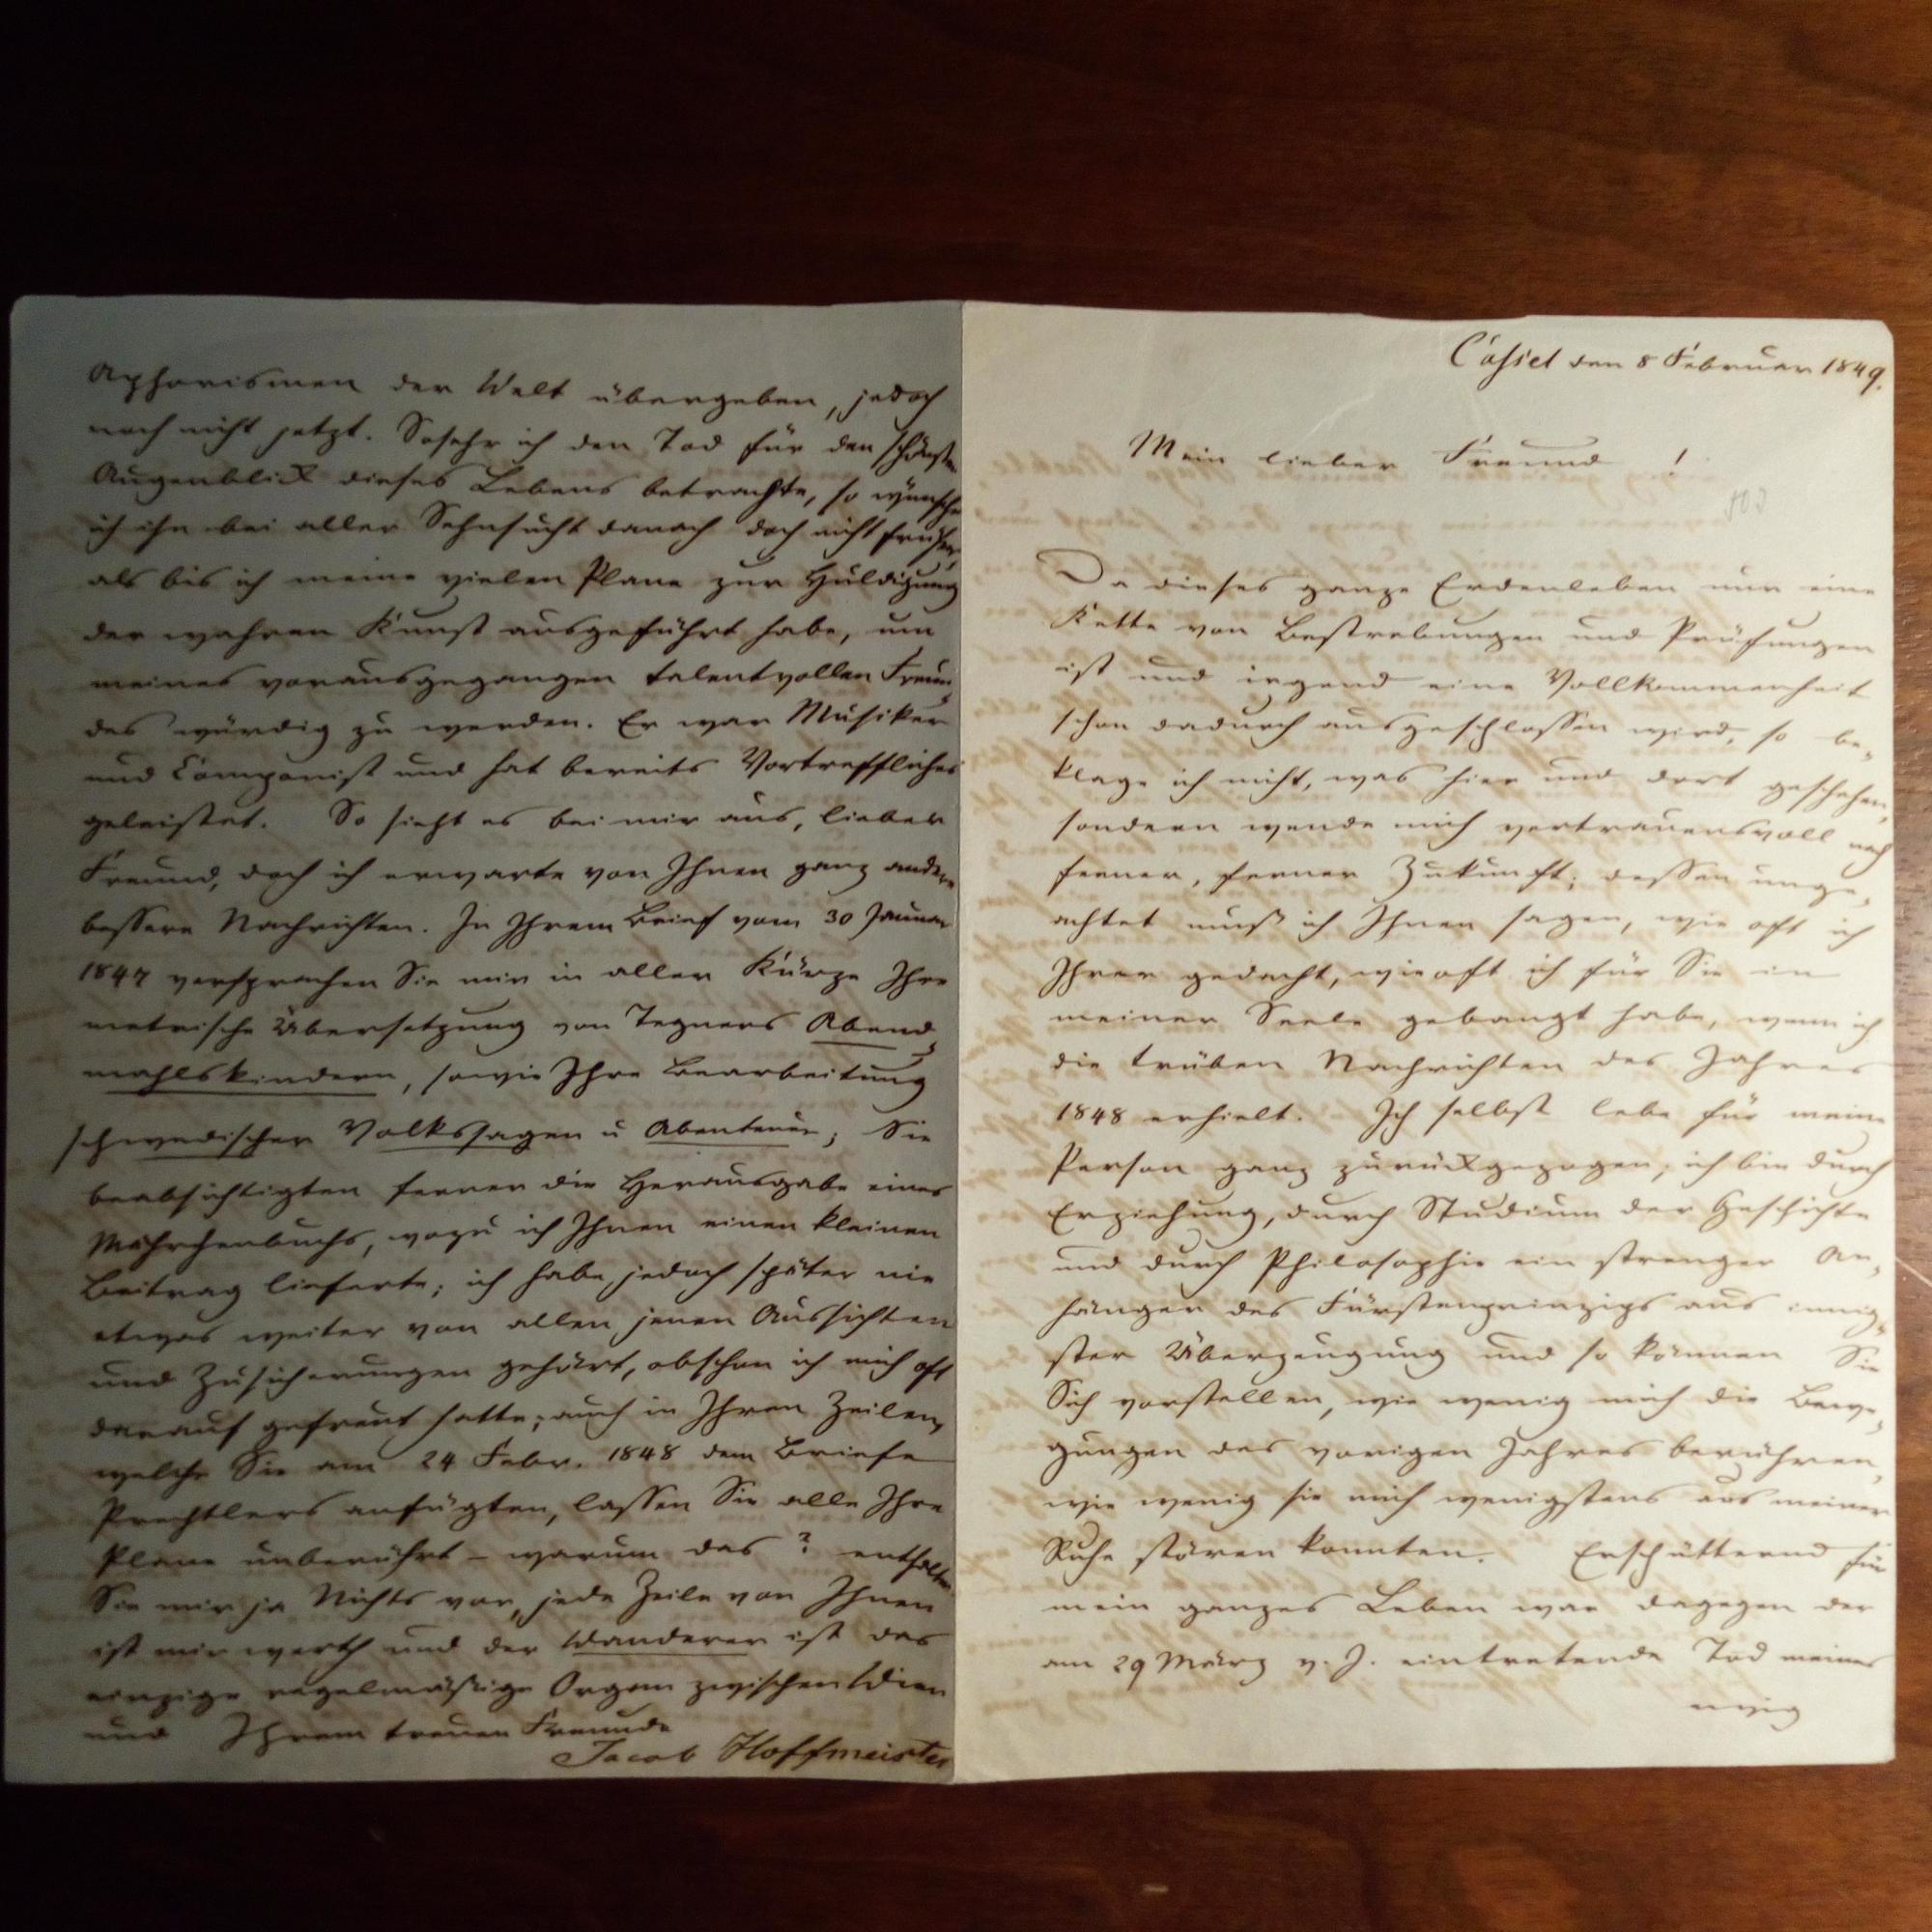 Cassel den 8 Februar 1849.
Mein lieber Freund !
Da dieses ganze Erdenleben nur eine
Kette von Bestrebungen und Prüfungen
ist und irgend eine Vollkommenheit
schon dadurch ausgeschlossen wird, so be-
klage ich nicht, was hier und dort geschehen,
sondern wende mich vertrauensvoll nach
ferner, ferner Zukunft; dessen unge-
achtet muß ich Ihnen sagen, wie oft ich
Ihrer gedacht, wie oft ich für Sie in
meiner Seele gebangt habe, wenn ich
die trüben Nachrichten des Jahres
1848 erhielt. Ich selbst lebe für meine
Person ganz zurückgezogen; ich bin durch
Erziehung, durch Studium der Geschichte
und durch Philosophie ein strenger An-
hänger des Fürstenprinzips aus innig-
ster Überzeugung und so können Sie
Sich vorstellen, wie wenig mich die Bewe-
gungen des vorigen Jahres berühren,
wie wenig sie mich wenigstens aus meiner
Ruhe stören konnten. Erschütternd für
mein ganzes Leben war dagegen der
am 29 März v. J. eintretende Tod meines
einzig
Aphorismen der Welt übergeben, jedoch
noch nicht jetzt. Sosehr ich den Tod für den schönsten
Augenblick dieses Lebens betrachte, so wünsche
ich ihn bei aller Sehnsucht danach doch nicht früher
als bis ich meine vielen Plane zur Huldigung
der wahren Kunst ausgeführt habe, um
meines vorausgegangen talentvollen Freun-
des würdig zu werden. Er war Musiker
und Componist und hat bereits Vortreffliches
geleistet. So sieht es bei mir aus, lieber
Freund, doch ich erwarte von Ihnen ganz andere
bessere Nachrichten. In Ihrem Brief vom 30 Januar
1847 versprachen Sie mir in aller Kürze Ihre
metrische Übersetzung von Tegners Abend-
mahlskindern, sowie Ihre Bearbeitung
schwedischer Volkssagen u Abenteuer; Sie
beabsichtigten ferner die Herausgabe eines
Mährchenbuchs, wozu ich Ihnen einen kleinen
Beitrag lieferte; ich habe jedoch später nie
etwas weiter von allen jenen Aussichten
und Zusicherungen gehört, obschon ich mich oft
darauf gefreut hatte; auch in Ihren Zeilen,
welche Sie am 24 Febr. 1848 dem Briefe
Prechtlers anfügten, lassen Sie alle Ihre
Plane unberührt – warum das ? enthalten
Sie mir ja Nichts vor, jede Zeile von Ihnen
ist mir werth und der Wanderer ist das
einzige regelmäßige Organ zwischen Wien
und Ihrem treuen Freunde
Jacob Hoffmeister